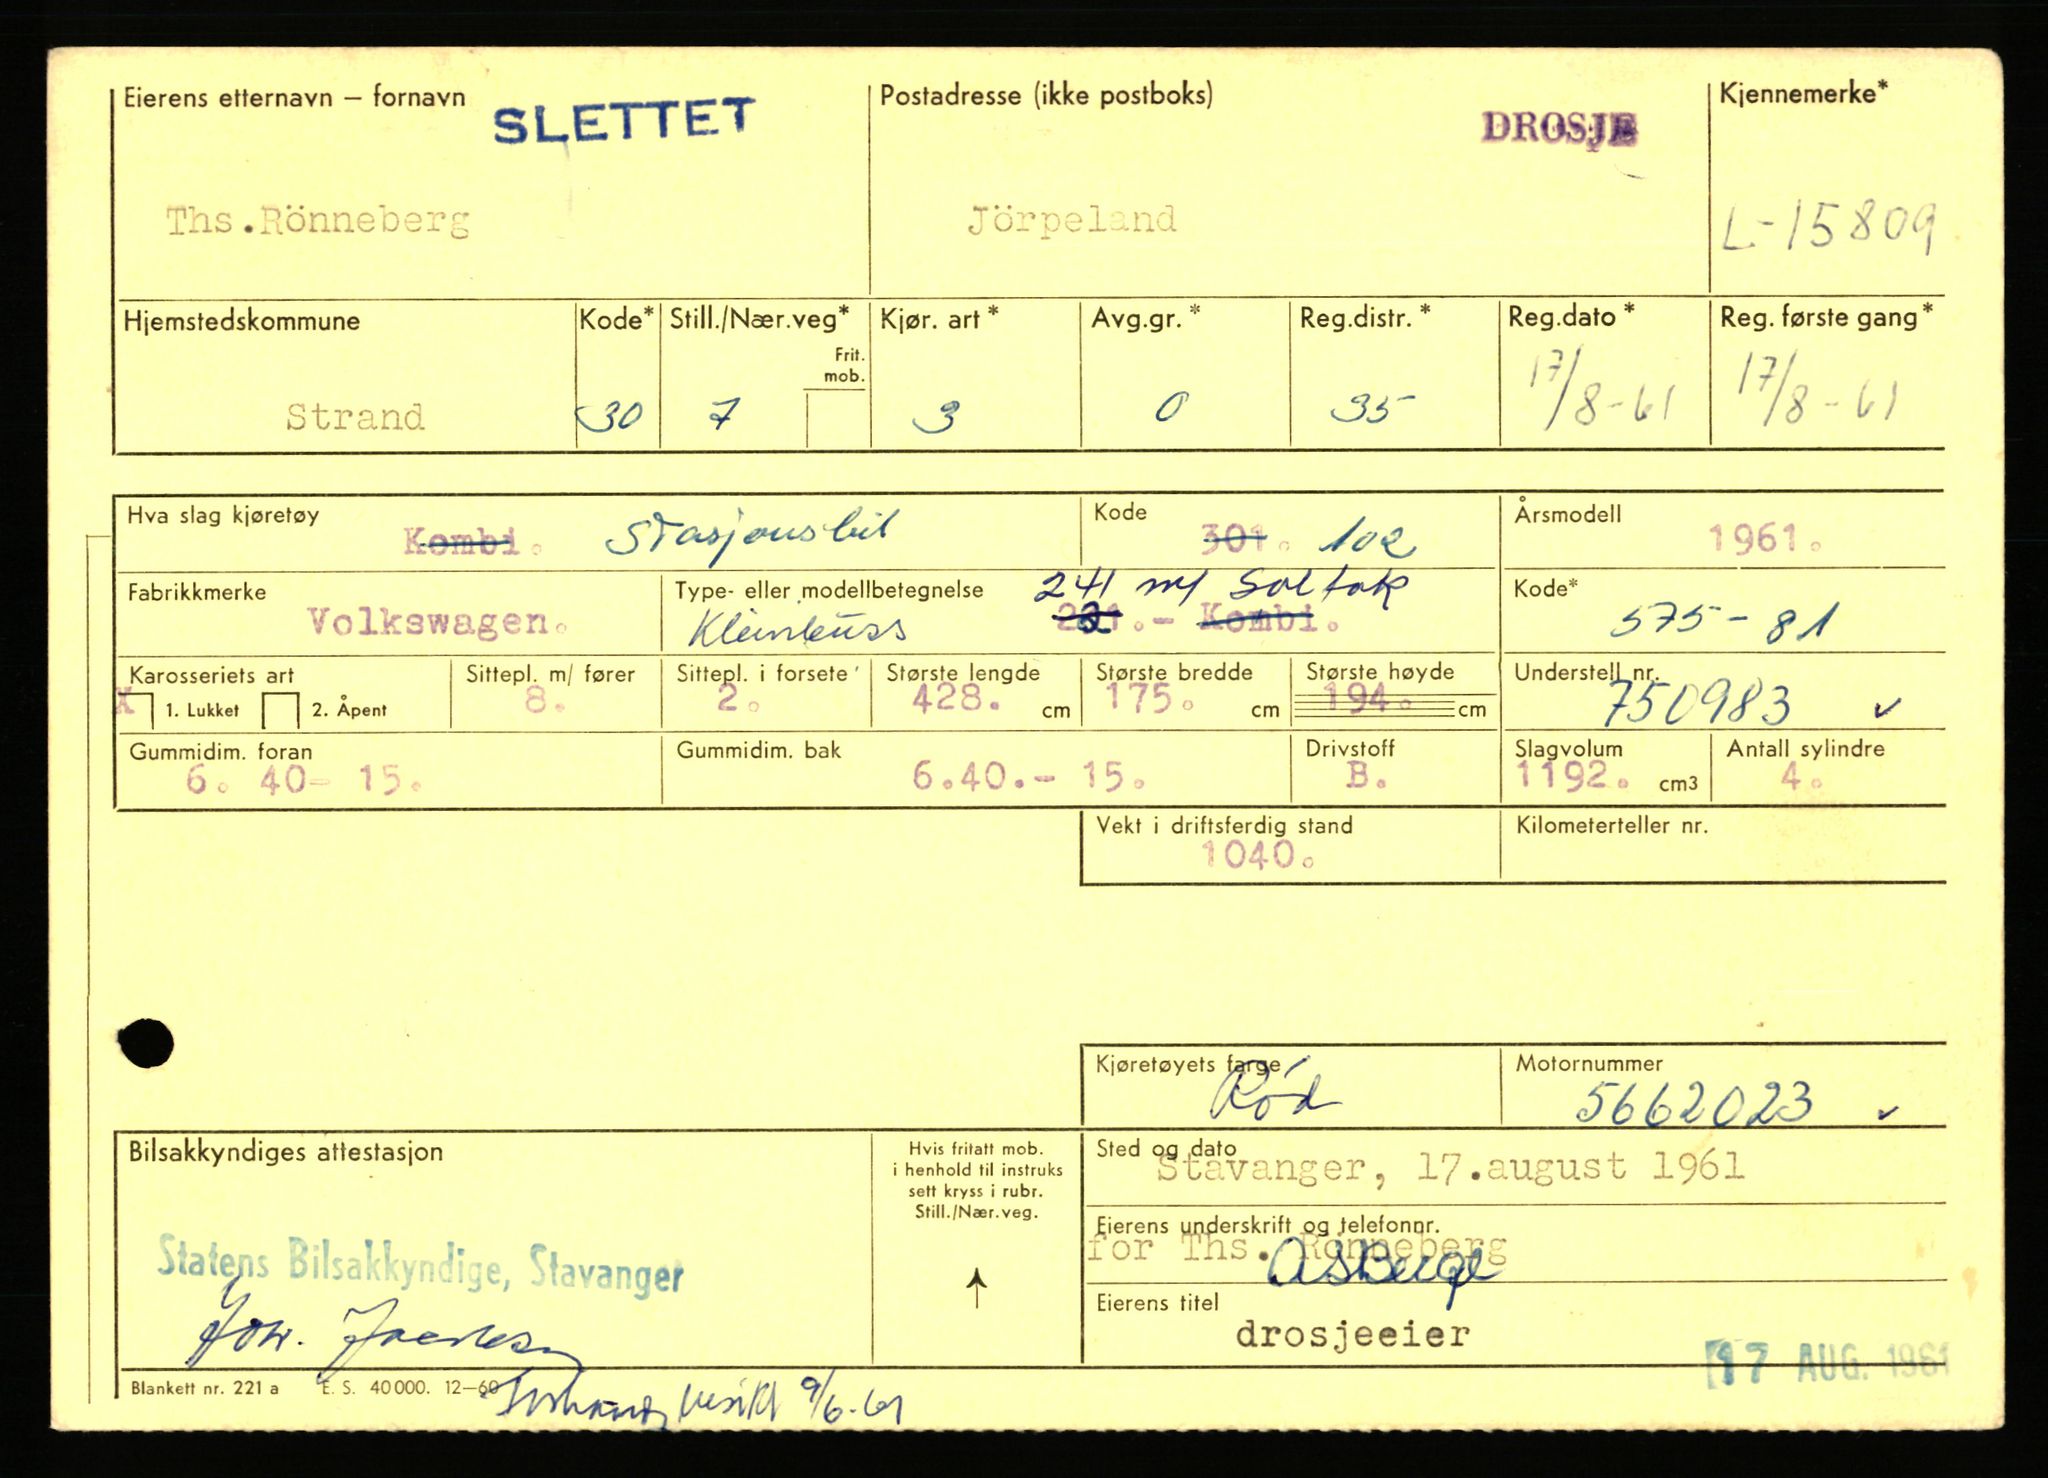 Eierens etternavn – fornavn
SLETTET
Postadresse (ikke postboks)
DROSJE
Kjennemerke*
Ths.Rönneberg
Jörpeland
L-15809
Hjemstedskommune
Kode*
Still./Nær.veg*
Frit. mob.
Kjør. art*
Avg.gr.*
Reg.distr.*
Reg.dato*
Reg. første gang*
Strand
30
7
3
0
35
17/8-61
17/8-61
Hva slag kjøretøy
Kombi. Stasjonsbil
Kode
301. 102
Årsmodell
1961.
Fabrikkmerke
Volkswagen.
Type- eller modellbetegnelse
241 m/ Soltak
Kleinbuss
221.- Kombi.
Kode*
575-81
Karosseriets art
X 1. Lukket 2. Åpent
Sittepl. m/ fører
8.
Sittepl. i forsete
2.
Største lengde
428. cm
Største bredde
175. cm
Største høyde
194. cm
Understell nr.
750983
Gummidim. foran
6. 40- 15.
Gummidim. bak
6.40.- 15.
Drivstoff
B.
Slagvolum
1192. cm3
Antall sylindre
4.
Vekt i driftsferdig stand
1040.
Kilometerteller nr.
Kjøretøyets farge
Rød
Motornummer
5662023
Bilsakkyndiges attestasjon
Hvis fritatt mob.
i henhold til instruks
sett kryss i rubr.
Still./Nær.veg.
Sted og dato
Stavanger, 17.august 1961
Eierens underskrift og telefonnr.
for Ths. Rönneberg
Statens Bilsakkyndige, Stavanger
Eierens titel
drosjeeier
17 AUG. 1961
Blankett nr. 221 a E. S. 40000. 12–60
9/6-61